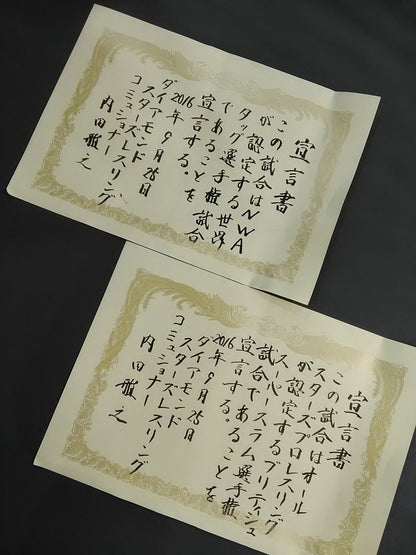 宣言書
この試合はNWA
が認定する世界
タッグ選手権試合
であることを
宣言する。
2016年9月25日
ダイアモンド
スターズレスリング
コミッショナー
内田雅之
宣言書
この試合はオール
スターズプロレスリング
が認定するブリティシュ
スーパースラム選手権
試合であることを
宣言する。
2016年9月25日
ダイアモンド
スターズレスリング
コミッショナー
内田雅之